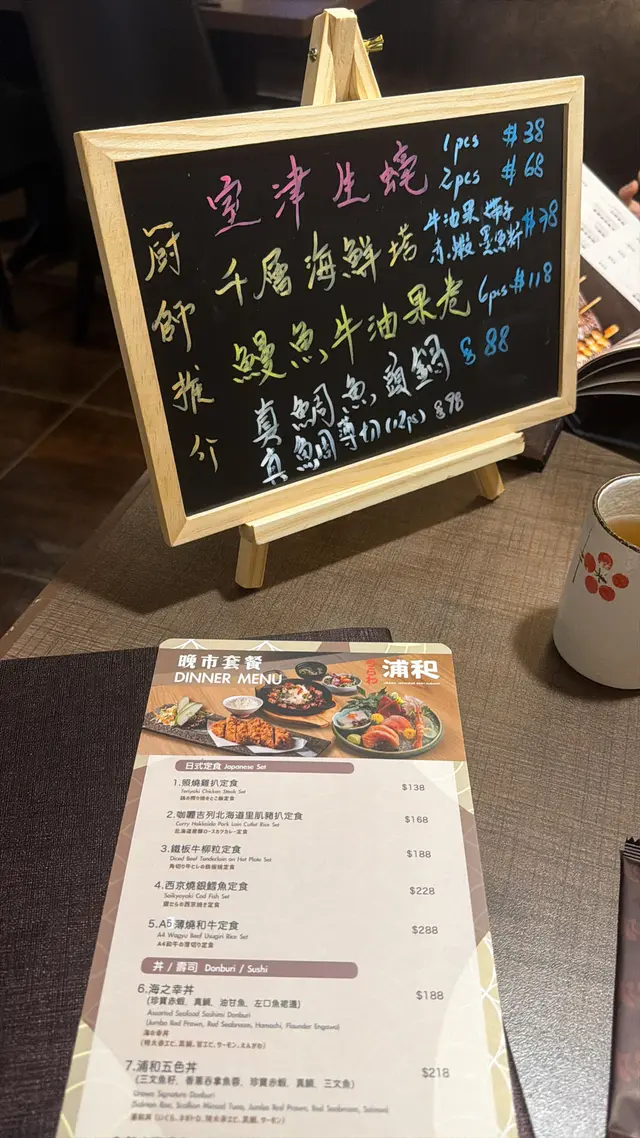 厨師推介
室津生蠔 1pcs $38
2pcs $68
千層海鮮塔 牛油果 帶子
赤蝦 墨魚籽 $78
鰻魚牛油果卷 6pcs $118
真鯛魚頭鍋 $88
真鯛薄切(12pc) $98
晚市套餐
DINNER MENU
浦和
日式定食 Japanese Set
1.照燒雞扒定食 $138
Teriyaki Chicken Steak Set
鶏の照り焼きとご飯定食
2.咖喱吉列北海道里肌豬扒定食 $168
Curry Hokkaido Pork Loin Cutlet Rice Set
北海道産豚ロースカツカレー定食
3.鐵板牛柳粒定食 $188
Diced Beef Tenderloin on Hot Plate Set
角切り牛ヒレの鉄板焼定食
4.西京燒銀鱈魚定食 $228
Saikyoyaki Cod Fish Set
銀だらの西京焼き定食
5.A5薄燒和牛定食 $288
A4 Wagyu Beef Usugiri Rice Set
A4和牛の薄切り定食
丼 / 壽司 Donburi / Sushi
6.海之幸丼 $188
(珍寶赤蝦、真鯛、油甘魚、左口魚裙邊)
Assorted Seafood Sashimi Donburi
(Jumbo Red Prawn, Red Seabream, Hamachi, Flounder Engawa)
海の幸丼
7.浦和五色丼 $218
(三文魚籽、香蔥吞拿魚蓉、珍寶赤蝦、真鯛、三文魚)
Urawa Signature Donburi
(Salmon Roe, Scallion Minced Tuna, Jumbo Red Prawn, Red Seabream, Salmon)